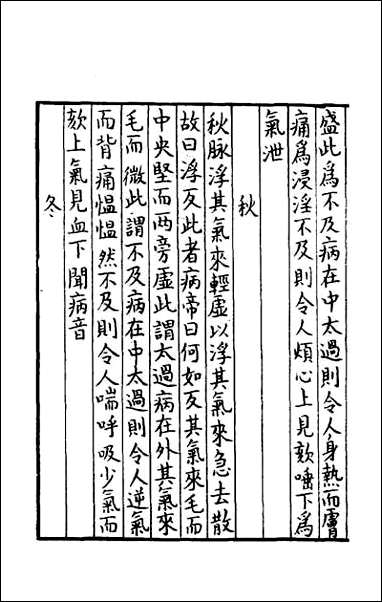 盛此為不及病在中太過則令人身熱而膚
痛為浸淫不及則令人煩心上見欬唾下為
氣泄
秋
秋脉浮其氣來輕虛以浮其氣來急去散
故曰浮反此者病帝曰何如反其氣來毛而
中央堅而两旁虛此謂太過病在外其氣來
毛而微此謂不及病在中太過則令人逆氣
而背痛愠愠然不及則令人喘呼吸少氣而
欬上氣見血下聞病音
冬